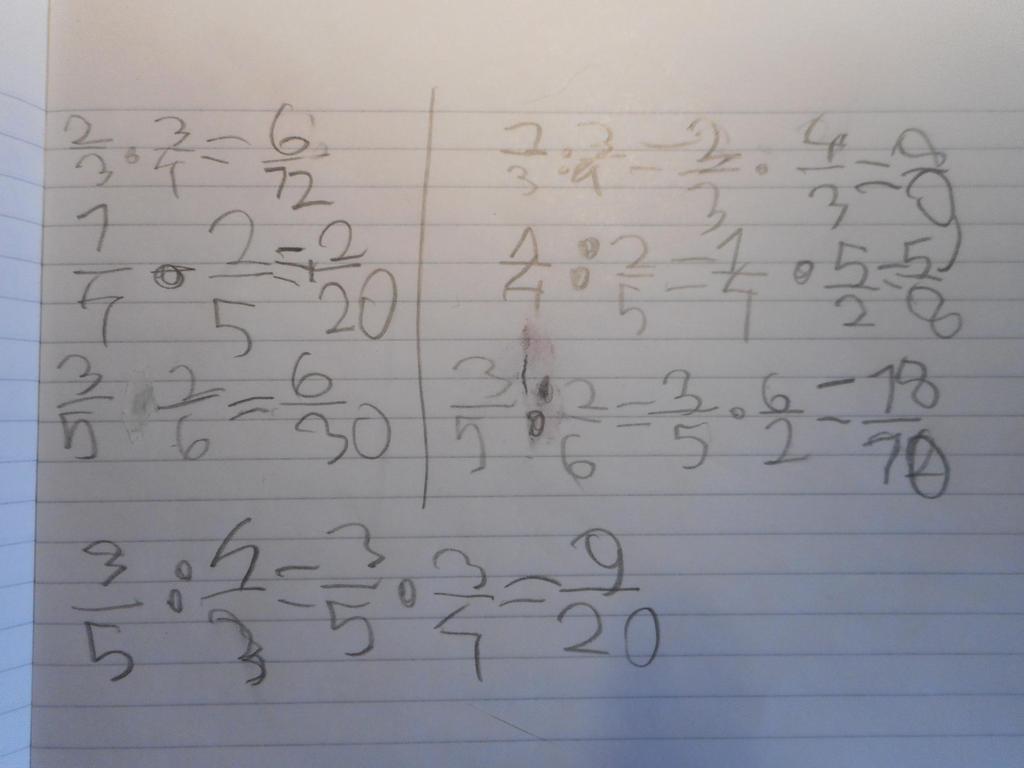 2/3 · 3/4 = 6/12
1/4 · 2/5 = 2/20
3/5 2/6 = 6/30
2/3 : 3/4 = 2/3 · 4/3 = 8/9
1/4 : 2/5 = 1/4 · 5/2 = 5/8
3/5 : 2/6 = 3/5 · 6/2 = 18/10
3/5 : 4/3 = 3/5 · 3/4 = 9/20